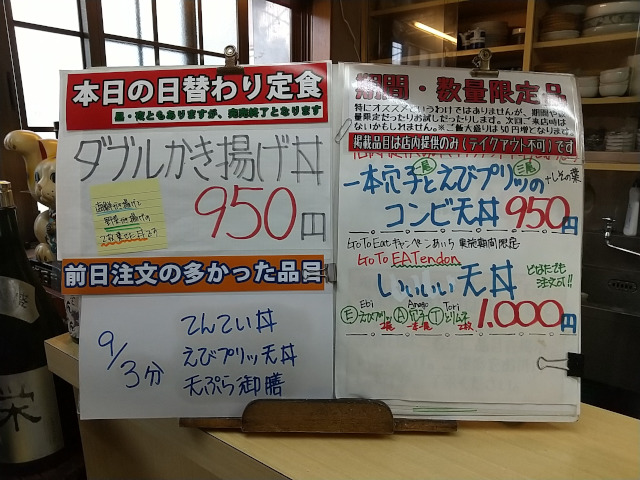 本日の日替わり定食
昼・夜ともありますが、売切終了となります
ダブルかき揚げ丼
海鮮かき揚げと
野菜かき揚げの
2つが乗せた丼です
950円
前日注文の多かった品目
9/3分
てんてい丼
えびプリッ天丼
天ぷら御膳
期間・数量限定品
特にオススメというわけではありませんが、期間や
量限定だったりお試しだったりします。次回ご来店時は
ないかもしれません。※ご飯大盛りは50円増となります。
掲載品目は店内提供のみ(テイクアウト不可)です
一本穴子とえびプリッの+しその葉
コンビ天丼950円
GoToEatキャンペーンあいち 実施期間限定
GoTo EATendon
いぃぃぃ天丼 どなたでも
注文可!!
Ebi Anago Tori
Eえびプリッ2尾 A穴子一本 Tとりムネ2枚 1,000円
栄